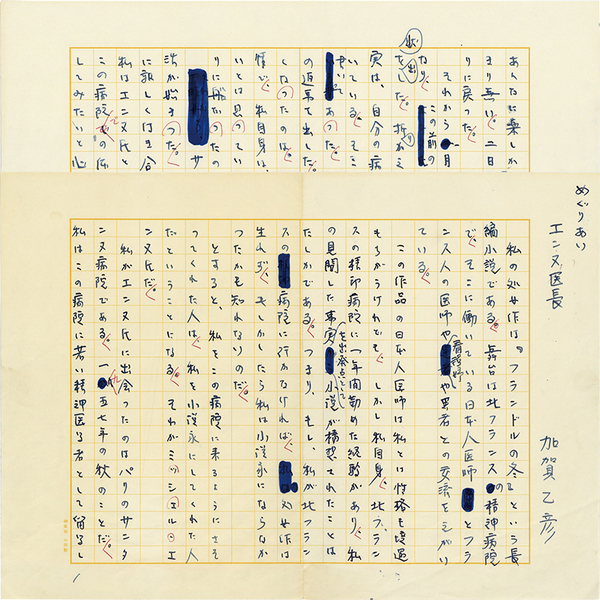 めぐりあい
エンヌ医長
加賀乙彦
私の処女作は『フランドルの冬』という長
編小説である。舞台は北フランスの精神病院
で、そこに働いている日本人医師とフラ
ンス人の医師や看護婦や患者との交流をえがい
ている。
この作品の日本人医師は私とは性格も境遇
もちがうけれども、しかし私自身、北フラン
スの精神病院に一年間勤めた経験があり、私
の見聞した事実を出発点として小説が構想されたことは
たしかである。つまり、もし、私が北フラン
スの病院に行かなければ、処女作は
生れず、もしかしたら私は小説家にならなか
ったかも知れないのだ。
とすると、私をこの病院に来るようにさそ
ってくれた人は、私を小説家にしてくれた人
だということになる。それがミッシェル・エ
ンヌ氏だ。
私がエンヌ氏に出会ったのはパリのサンタ
ンヌ病院である。一九五七年の秋のことだ。
私はこの病院に若い精神医学者として留学し
あんなに楽しか
まり無い。二日
りに戻った。
それから一月
なり、この前の
をした。折から
実は、自分の病
いている。そこ
の近くを出した。
くなったのは、
情で、私自身は、
いとは思ってい
りに
サ
活が始まった。
に親しくつき合
私はエンヌ氏と
この病院での
してみたいと心